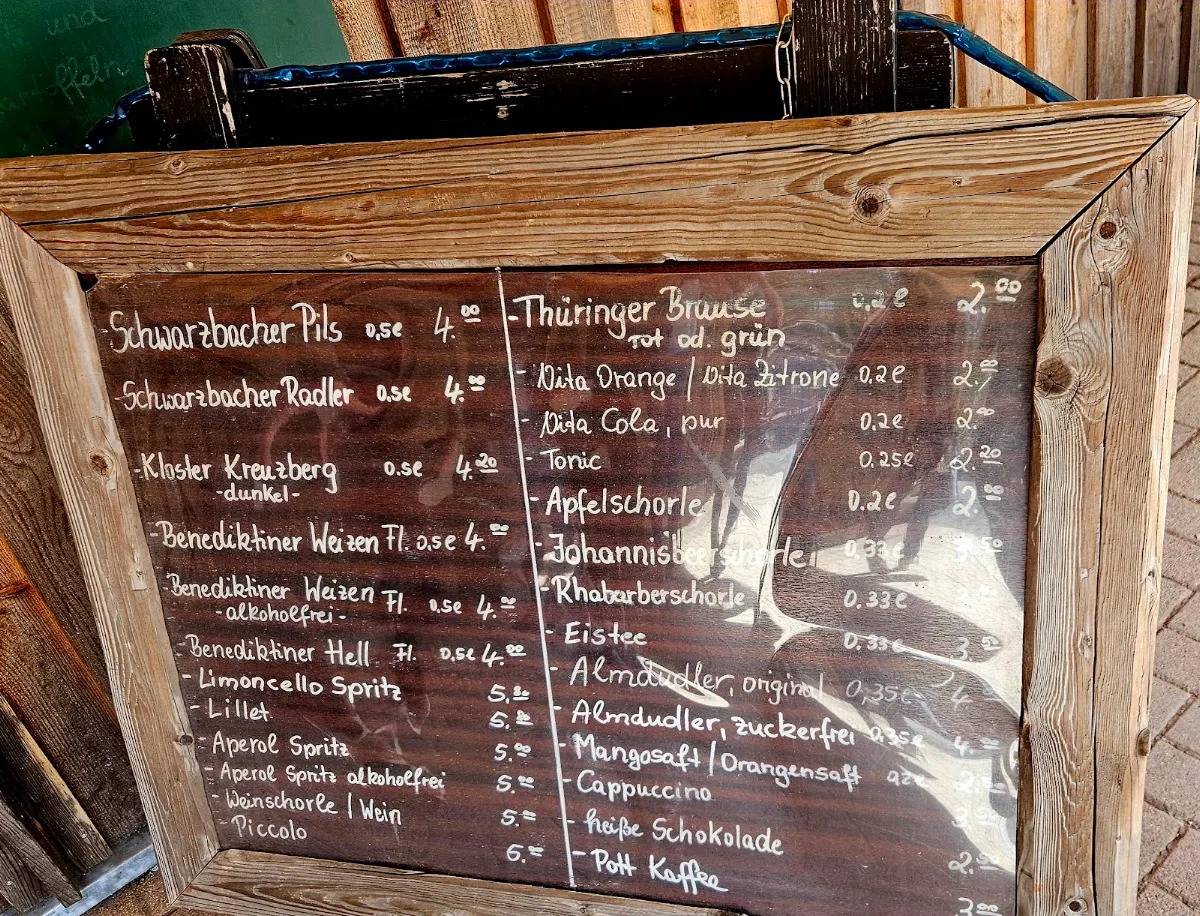 und
-Schwarzbacher Pils 0,5l 4.00
-Schwarzbacher Radler 0.5l 4.00
-Kloster Kreuzberg 0.5l 4.20
-dunkel-
-Benediktiner Weizen Fl. 0.5l 4.00
-Benediktiner Weizen Fl. 0,5l 4.00
-alkoholfrei-
-Benediktiner Hell Fl. 0,5l 4.00
-Limoncello Spritz 5.00
-Lillet 5.00
-Aperol Spritz 5.00
-Aperol Spritz alkoholfrei 5.00
-Weinschorle / Wein 5.00
-Piccolo 6.00
-Thüringer Brause 0,2l 2.00
rot od. grün
-Vita Orange / Vita Zitrone 0.2l 2.00
-Vita Cola, pur 0.2l 2.00
-Tonic 0.25l 2.20
-Apfelschorle 0.2l 2.
-Johannisbeerschorle 0,33l 3.50
-Rhabarberschorle 0.33l
-Eistee 0.33l 3.50
-Almdudler, original 0,35l 4.
-Almdudler, zuckerfrei 0.35l 4.
-Mangosaft / Orangensaft 0,2l 2.
-Cappuccino 3.
-heiße Schokolade 2.
-Pott Kaffee 3.00